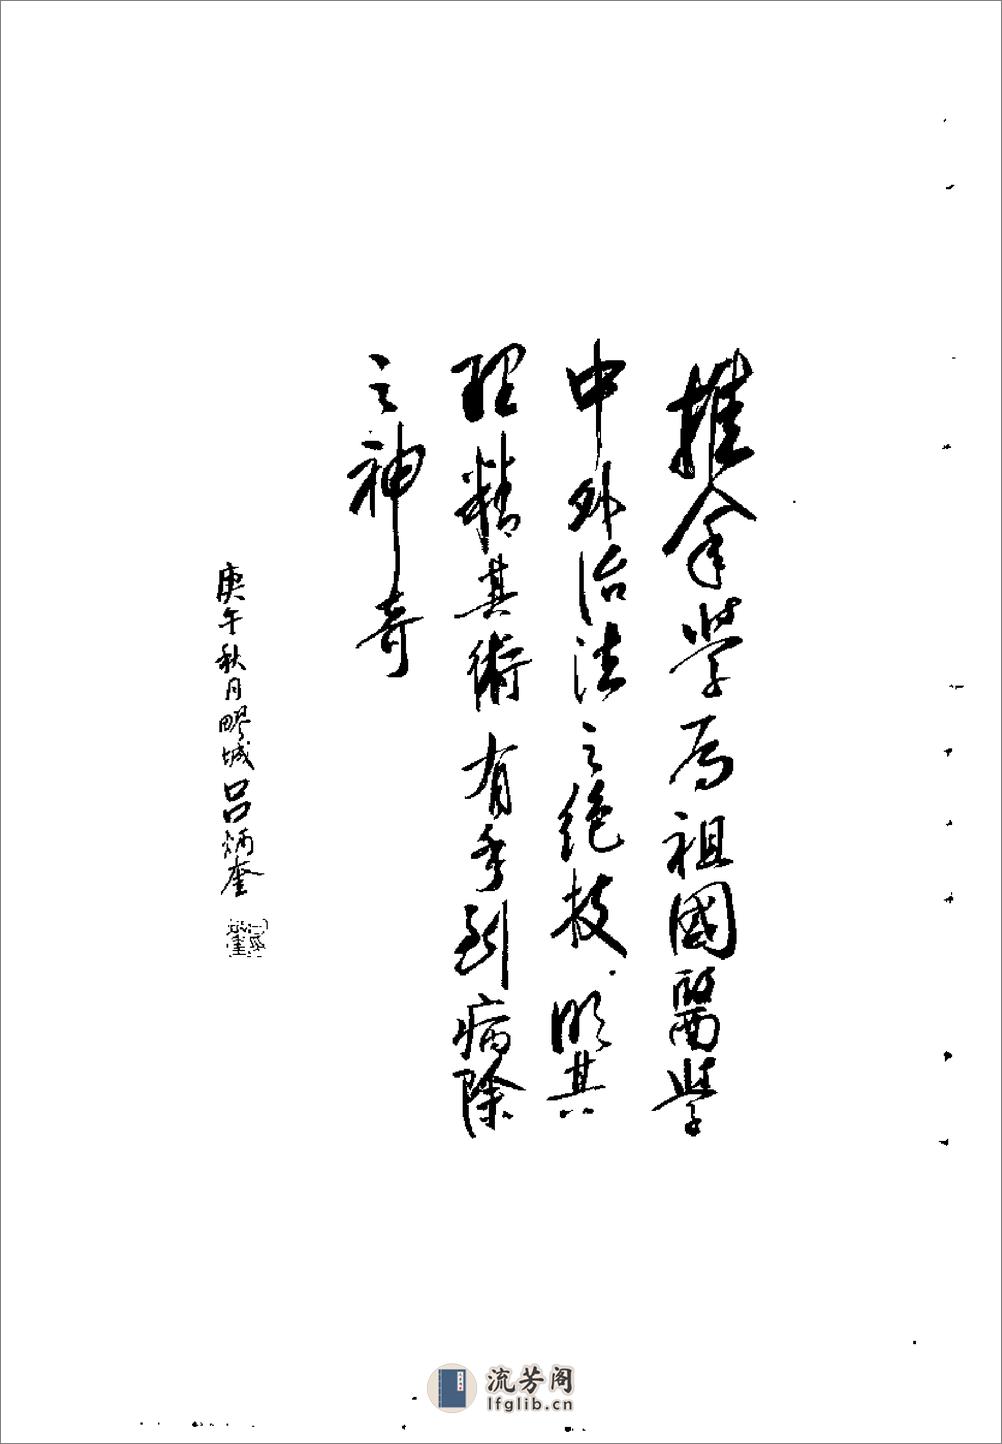 推拿学为祖國醫学
中外治法之绝技.明其
理精其術有手到病除
之神奇
庚午秋月疁城吕炳奎
流芳阁
lfglib.cn